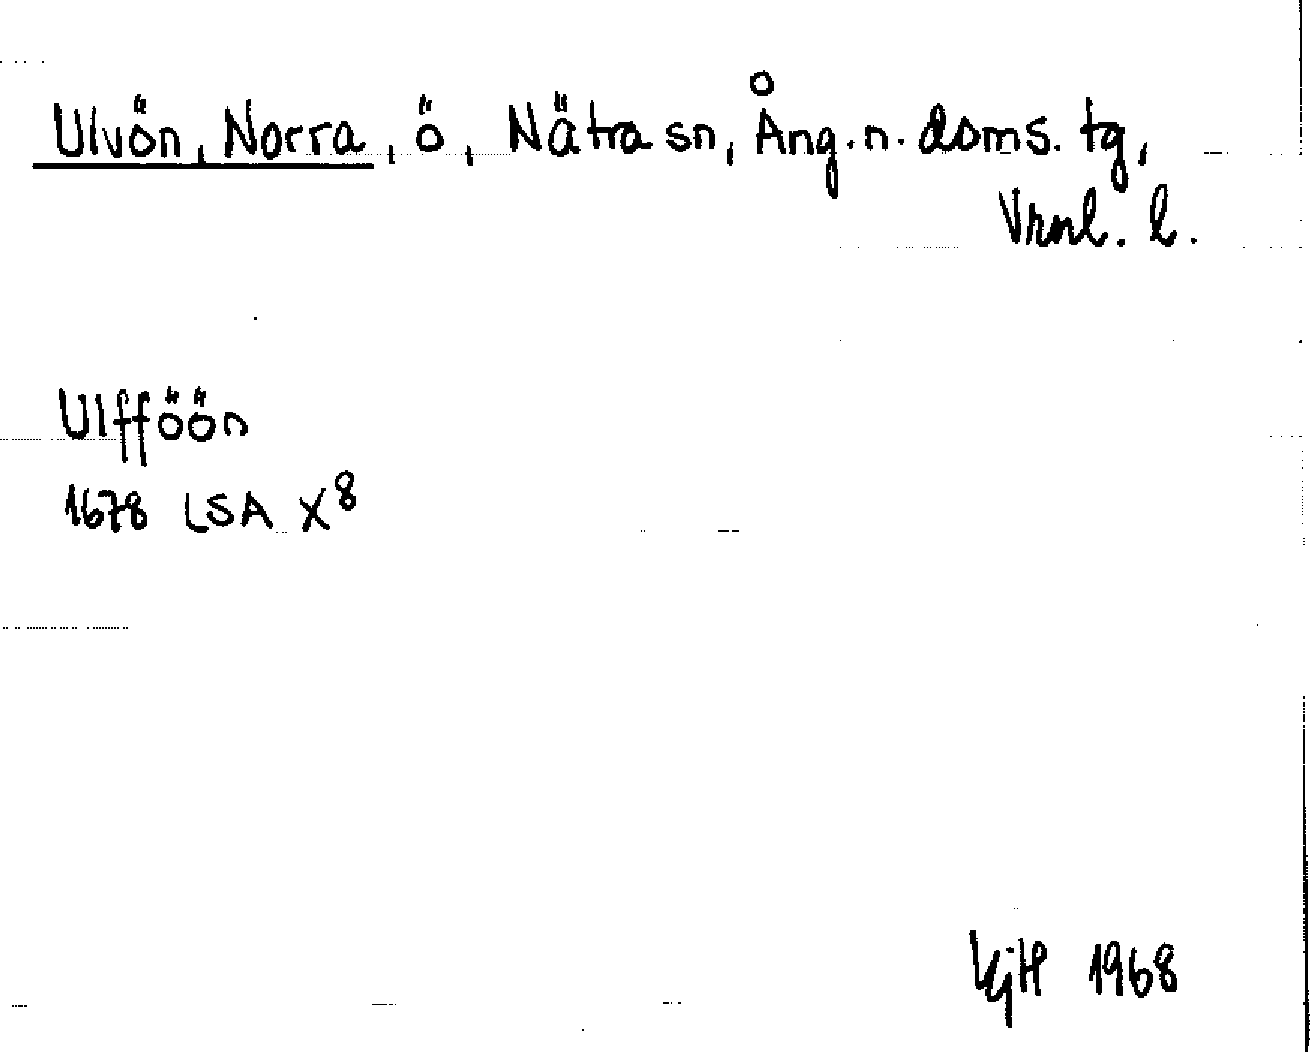 Ulvön, Norra, ö, Nätra sn, Ång. n. doms. tg,
Vrnl. l.
Ulfföön
1678 LSA X8
KjH 1968